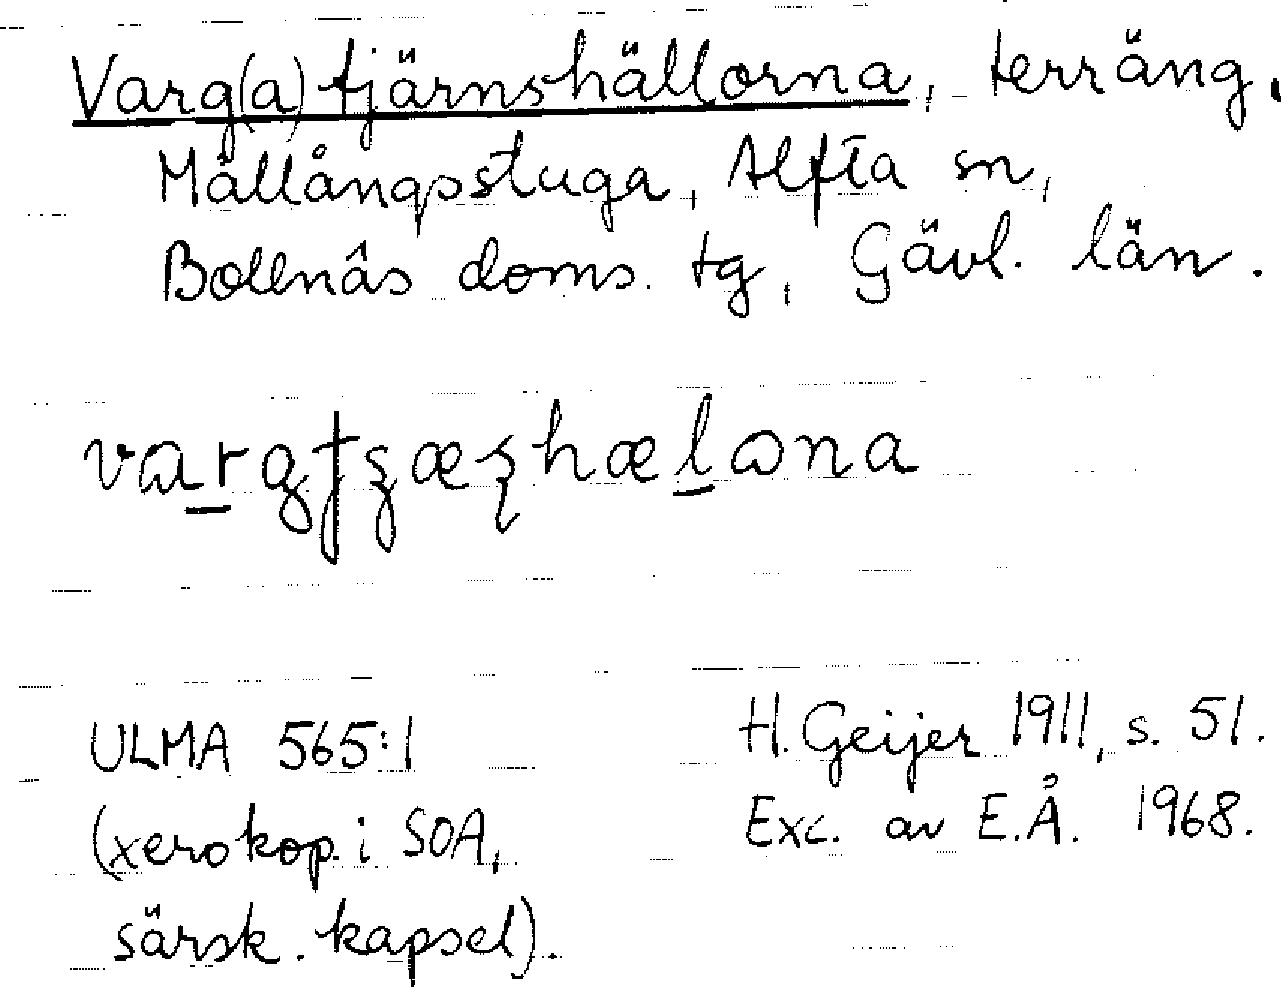 Varg(a)tjärnshällorna, terräng,
Mållångsstuga, Alfta sn,
Bollnäs doms. tg, Gävl. län.
ULMA 565:1
(xerokop. i SOA,
särsk. kapsel).
H. Geijer 1911, s. 51.
Exc. av E.Å. 1968.